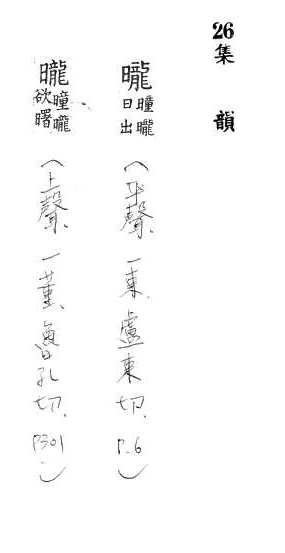 26 集韻
曨 曈曨日出(平聲、一東、盧東切、P.6)
曨 曈曨欲曙(上聲、一董、魯孔切、P301)